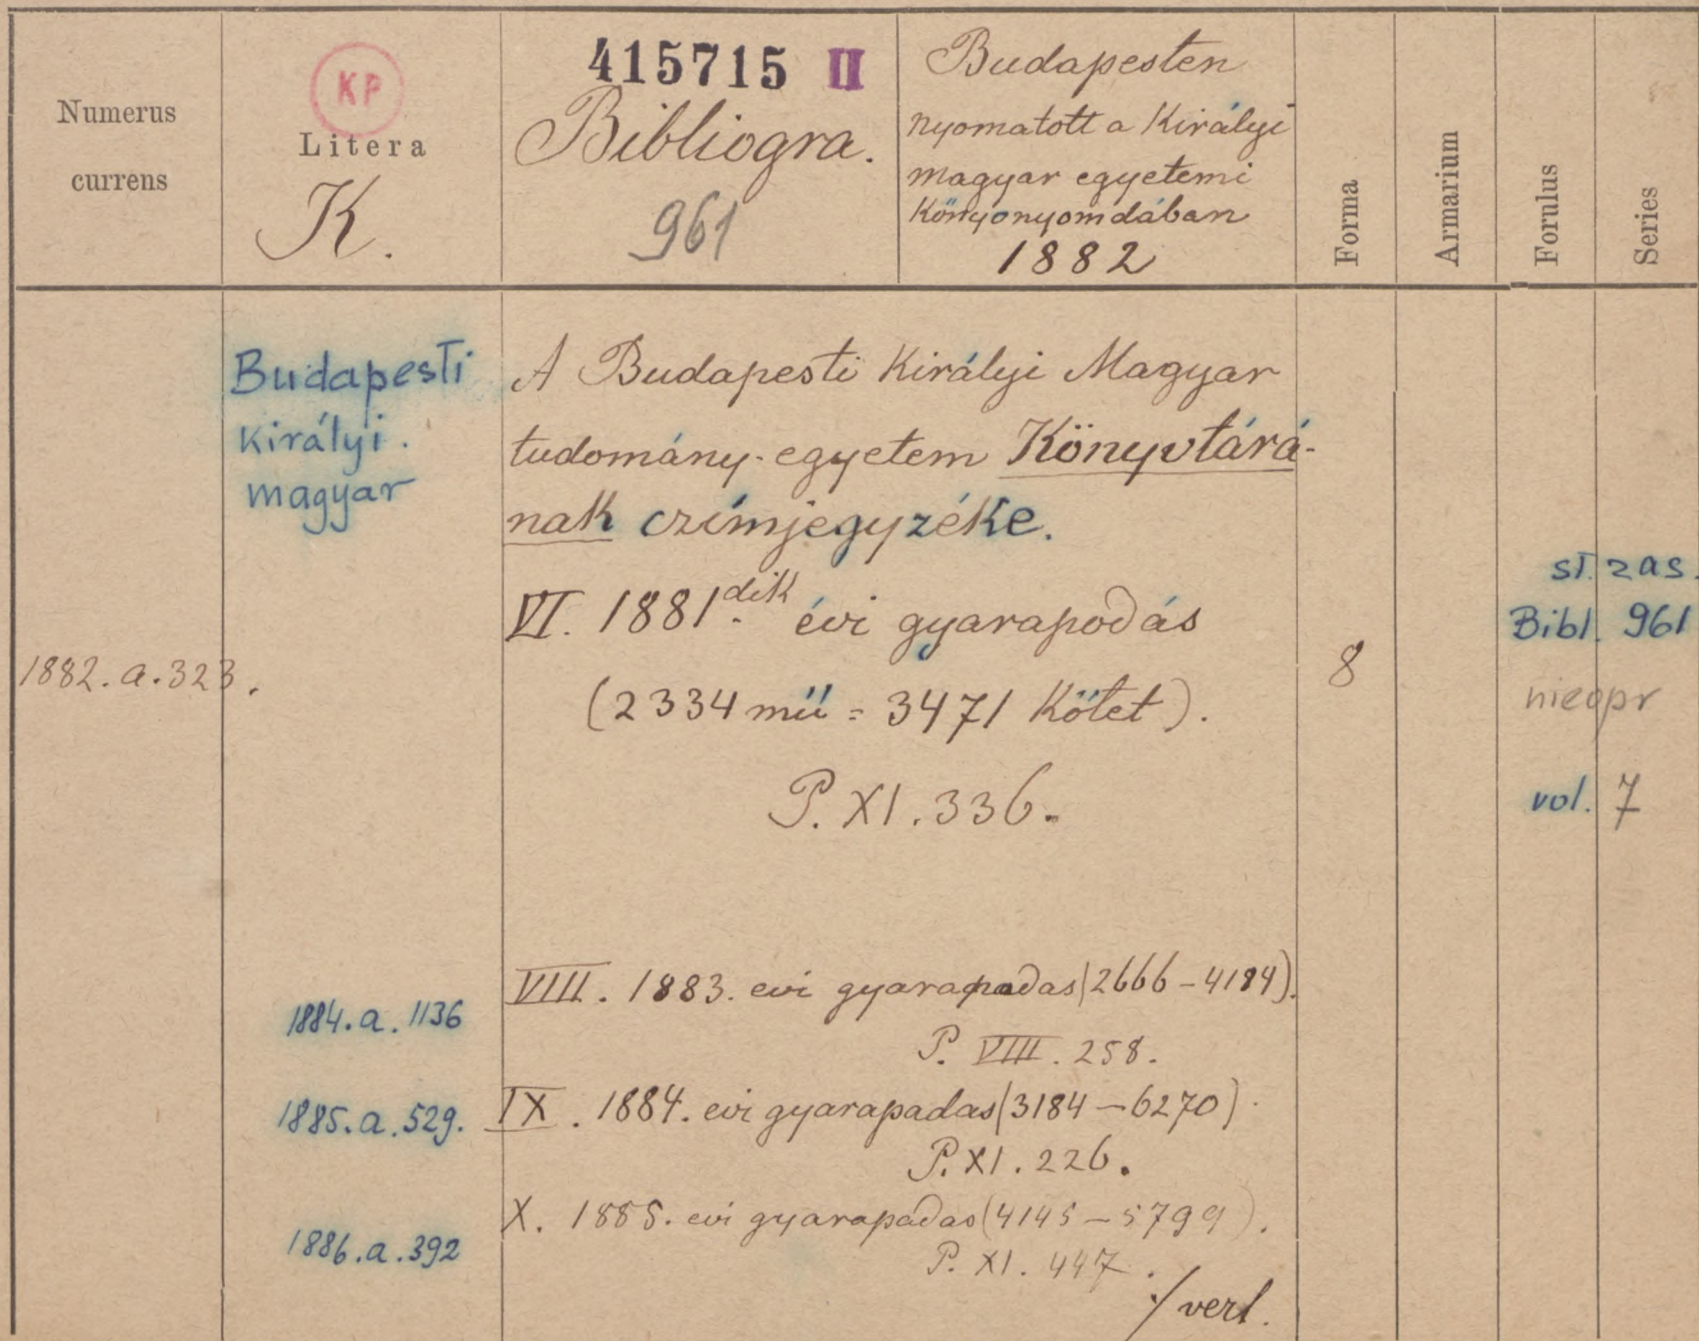 Numerus
currens
KP
Litera
K.
415715 II
Bibliogra.
961
Budapesten
nyomatott a Királyi
magyar egyetemi
Könyvnyomdában
1882
Forma
Armarium
Forulus
Series
Budapesti
királyi.
magyar
A Budapesti Királyi Magyar
tudomány-egyetem Könyvtárá-
nak czímjegyzéke.
VI. 1881.dik évi gyarapodás
1882.a.323.
(2334 mű = 3471 Kötet).
8
P. XI. 336.
st. zas.
Bibl. 961
nieopr
vol. 7
VIII. 1883. evi gyarapadas (2666 – 4184).
1884.a.1136
P. VIII. 258.
IX. 1884. evi gyarapadas (3184 – 6270).
1885.a.529.
P. XI. 226.
X. 1885. evi gyarapadas (4145 – 5799).
1886.a.392
P. XI. 447.
./ verl.